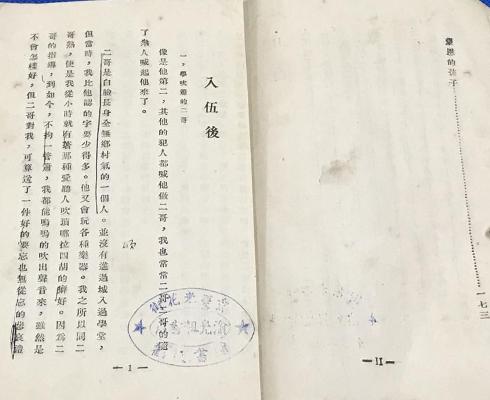 意思的孩子……一七三
II
入伍後
一，學吹簫的二哥
像是他第二，其他的犯人都喊他做二哥，我也常常二哥二哥的隨
了衆人喊起他來了。
二哥是白臉長身全無鄉村氣的一個人。並沒有進過城入過學堂，
但當時，我比他認的字要少得多。他又會玩各種樂器。我之所以同二
哥熟，便是我從小時就有着那種愛聽人吹瑣哪拉四胡的癖好。因爲二
哥的指導，到如今，不拘一管簫，我都能嗚嗚的吹出聲音來，雖然是
不會怎樣好，但二哥對我，可算送了一件好的要忘也無從忘的悲哀禮
1